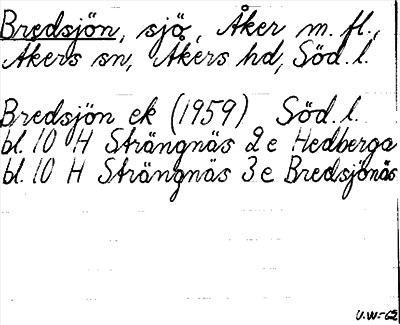 Bredsjön, sjö, Åker m.fl.,
Åkers sn, Åkers hd, Söd.l.
Bredsjön ek (1959) Söd.l.
bl.10 H Strängnäs 2e Hedberga
bl.10 H Strängnäs 3e Bredsjönäs
U.W-62